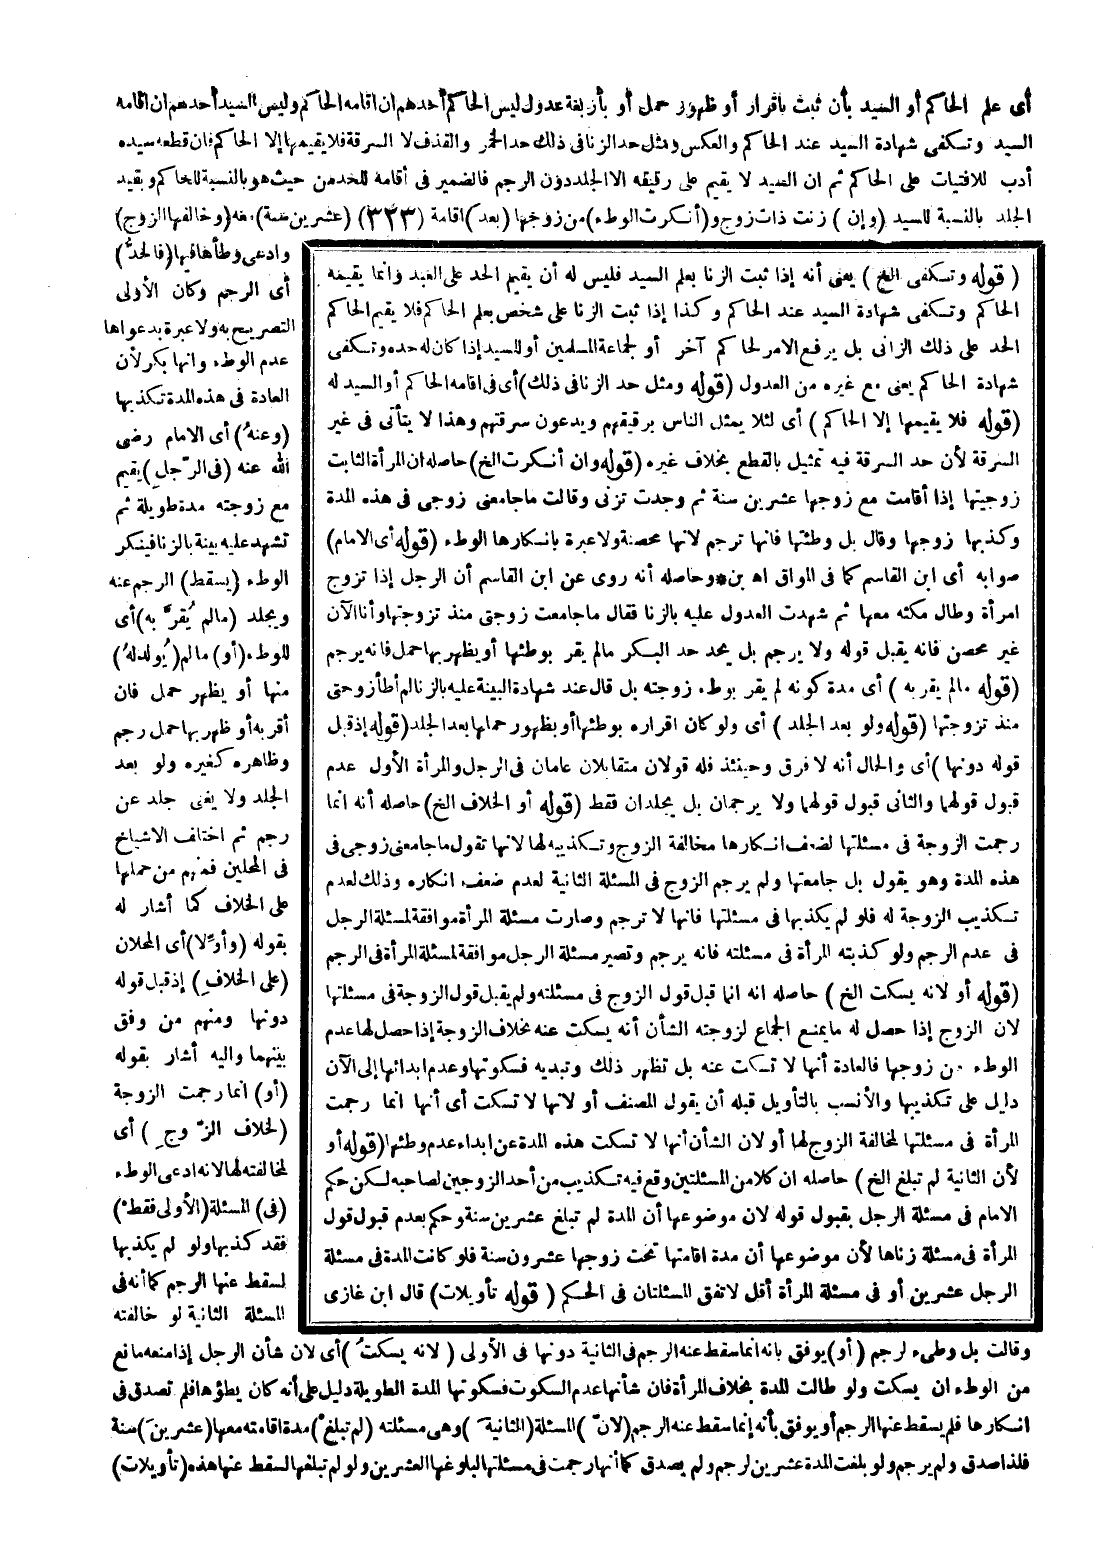 أى علم الحاكم أو السيد بأن ثبت باقرار أو ظهور حمل أو بأربعة عدول ليس الحاكم أحدهم ان اقامه الحاكم وليس السيد أحدهم ان اقامه
السيد وتكفى شهادة السيد عند الحاكم والعكس ومثل حد الزنا فى ذلك حد الخمر والقذف لا السرقة فلا يقيمها إلا الحاكم فان قطعه سيده
أدب للافتيات على الحاكم ثم ان السيد لا يقيم على رقيقه الا الجلد دون الرجم فالضمير فى أقامه للحد من حيث هو بالنسبة للحاكم وبقيد
الجلد بالنسبة للسيد (وإن) زنت ذات زوج و(أنكرت الوطء) من زوجها (بعد) اقامة (٣٢٣) (عشرين سنة) معه (وخالفها الزوج)
وادعى وطأها فيها (فالحدُّ)
أى الرجم وكان الأولى
التصريح به ولا عبرة بدعواها
عدم الوطء وانها بكر لأن
العادة فى هذه المدة تكذبها
(وعنهُ) أى الامام رضى
الله عنه (فى الرّجلِ) يقيم
مع زوجته مدة طويلة ثم
تشهد عليه بينة بالزنا فينكر
الوطء (يسقط) الرجم عنه
ويجلد (مالم يُقرَّ به) أى
للوطء (أو) مالم (يُولدلهُ)
منها أو يظهر حمل فان
أقر به أو ظهر بها حمل رجم
وظاهره كغيره ولو بعد
الجلد ولا يغنى جلد عن
رجم ثم اختلف الاشياخ
فى المحلين فمنهم من حملها
على الخلاف كما أشار له
بقوله (وأوِّلا) أى المحلان
(على الخلافِ) إذ قبل قوله
دونها ومنهم من وفق
بينهما واليه أشار بقوله
(أو) انما رجمت الزوجة
(لخلاف الزّوجِ) أى
لمخالفته لها لانه ادعى الوطء
(فى) المسئلة (الأولى فقطْ)
فقد كذبها ولو لم يكذبها
لسقط عنها الرجم كما أنه فى
المسئلة الثانية لو خالفته
(قوله وتكفى الخ) يعنى أنه إذا ثبت الزنا بعلم السيد فليس له أن يقيم الحد على العبد وانما يقيمه
الحاكم وتكفى شهادة السيد عند الحاكم وكذا إذا ثبت الزنا على شخص بعلم الحاكم فلا يقيم الحاكم
الحد على ذلك الزانى بل يرفع الامر لحاكم آخر أو لجماعة المسلمين أو للسيد إذا كان له حده وتكفى
شهادة الحاكم يعنى مع غيره من العدول (قوله ومثل حد الزنا فى ذلك) أى فى اقامه الحاكم أو السيد له
(قوله فلا يقيمها إلا الحاكم) أى لئلا يمثل الناس برقيقهم ويدعون سرقتهم وهذا لا يتأتى فى غير
السرقة لأن حد السرقة فيه تمثيل بالقطع بخلاف غيره (قوله وان أنكرت الخ) حاصله ان المرأة الثابت
زوجيتها إذا أقامت مع زوجها عشرين سنة ثم وجدت تزنى وقالت ما جامعنى زوجى فى هذه المدة
وكذبها زوجها وقال بل وطئتها فانها ترجم لانها محصنة ولا عبرة بانكارها الوطء (قوله أى الامام)
صوابه أى ابن القاسم كما فى المواق اه بن * وحاصله أنه روى عن ابن القاسم أن الرجل إذا تزوج
امرأة وطال مكثه معها ثم شهدت العدول عليه بالزنا فقال ما جامعت زوجتى منذ تزوجتها وأنا الآن
غير محصن فانه يقبل قوله ولا يرجم بل يحد حد البكر مالم يقر بوطئها أو يظهر بها حمل فانه يرجم
(قوله مالم يقر به) أى مدة كونه لم يقر بوطء زوجته بل قال عند شهادة البينة عليه بالزنا لم أطأ زوجتى
منذ تزوجتها (قوله ولو بعد الجلد) أى ولو كان اقراره بوطئها أو بظهور حملها بعد الجلد (قوله إذ قبل
قوله دونها) أى والحال أنه لا فرق وحينئذ فله قولان متقابلان عامان فى الرجل والمرأة الأول عدم
قبول قولهما والثانى قبول قولهما ولا يرجمان بل يجلدان فقط (قوله أو الخلاف الخ) حاصله أنه انما
رجمت الزوجة فى مسئلتها لضعف انكارها مخالفة الزوج وتكذيبه لها لانها تقول ما جامعنى زوجى فى
هذه المدة وهو يقول بل جامعتها ولم يرجم الزوج فى المسئلة الثانية لعدم ضعف انكاره وذلك لعدم
تكذيب الزوجة له فلو لم يكذبها فى مسئلتها فانها لا ترجم وصارت مسئلة المرأة موافقة لمسئلة الرجل
فى عدم الرجم ولو كذبته المرأة فى مسئلته فانه يرجم وتصير مسئلة الرجل موافقة لمسئلة المرأة فى الرجم
(قوله أو لانه يسكت الخ) حاصله انه انما قبل قول الزوج فى مسئلته ولم يقبل قول الزوجة فى مسئلتها
لان الزوج إذا حصل له ما يمنع الجماع لزوجته الشأن أنه يسكت عنه بخلاف الزوجة إذا حصل لها عدم
الوطء من زوجها فالعادة أنها لا تسكت عنه بل تظهر ذلك وتبديه فسكوتها وعدم ابدائها إلى الآن
دليل على تكذيبها والأنسب بالتأويل قبله أن يقول المصنف أو لانها لا تسكت أى أنها انما رجمت
المرأة فى مسئلتها لمخالفة الزوج لها أو لان الشأن أنها لا تسكت هذه المدة عن ابداء عدم وطئها (قوله أو
لأن الثانية لم تبلغ الخ) حاصله ان كلا من المسئلتين وقع فيه تكذيب من أحد الزوجين لصاحبه لكن حكم
الامام فى مسئلة الرجل بقبول قوله لان موضوعها أن المدة لم تبلغ عشرين سنة وحكم بعدم قبول قول
المرأة فى مسئلة زناها لأن موضوعها أن مدة اقامتها تحت زوجها عشرون سنة فلو كانت المدة فى مسئلة
الرجل عشرين أو فى مسئلة المرأة أقل لاتفق المسئلتان فى الحكم (قوله تأويلات) قال ابن غازى
وقالت بل وطىء لرجم (أو) يوفق بانه انما سقط عنه الرجم فى الثانية دونها فى الأولى (لانه يسكتُ) أى لان شأن الرجل إذا منعه مانع
من الوطء ان يسكت ولو طالت المدة بخلاف المرأة فان شأنها عدم السكوت فسكوتها المدة الطويلة دليل على أنه كان يطؤها فلم تصدق فى
انكارها فلم يسقط عنها الرجم أو يوفق بأنه إنما سقط عنه الرجم (لانّ) المسئلة (الثانيةَ) وهى مسئلته (لم تبلغْ) مدة اقامته معها (عشرينَ) سنة
فلذا صدق ولم يرجم ولو بلغت المدة عشرين لرجم ولم يصدق كما أنها رجمت فى مسئلتها لبلوغها العشرين ولو لم تبلغها لسقط عنها هذه (تأويلات)